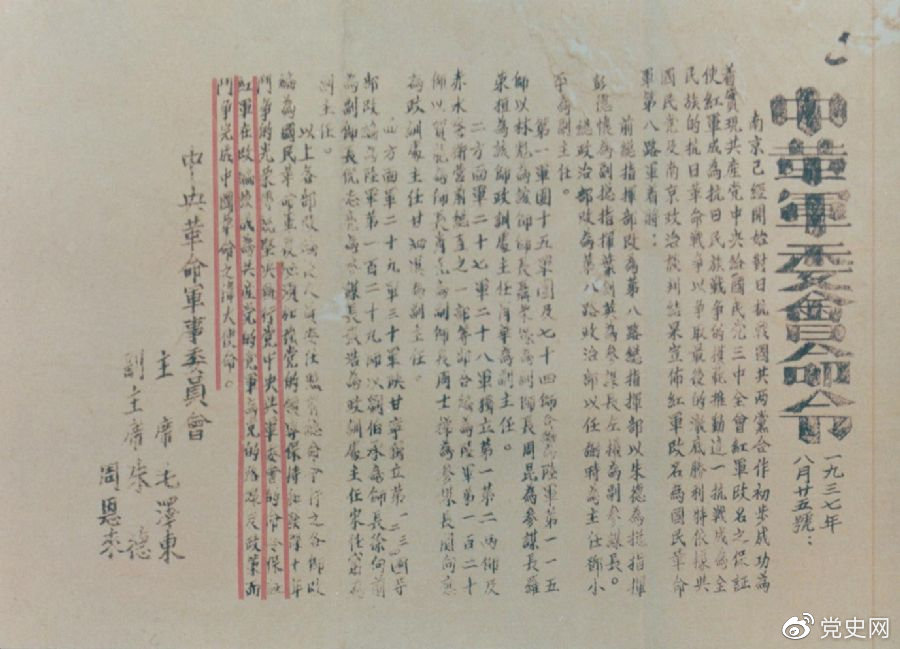 中革軍委會命令
一九三七年
八月廿五號：
南京已經開始對日抗戰國共兩黨合作初步成功為
着實現共產党中央給國民党三中全會紅軍改名之保証
使紅軍成為抗日民族戰爭的模範推動這一抗戰成為全
民族的抗日革命戰爭以爭取最後的澈底勝利特依據共
國民党及南京政治談判結果宣佈紅軍改名為國民革命
軍第八路軍着將：
前總指揮部改為第八路總指揮部以朱德為總指揮
彭德懷為副總指揮葉剑英為參謀長左權為副參謀長。
總政治部改為第八路政治部以任弼時為主任邓小
平為副主任。
第一軍團十五軍團及七十四師合編為陸軍第一一五
師以林彪為該師師長聶榮臻為副師長周昆為參謀長羅
榮桓為該師政訓處主任肖華為副主任。
二方面軍二十七軍二十八軍獨立第一第二兩師及
赤水警衛營前總直之一部等部合編為陸軍第一百二十
師以賀龍為師長肖克為副師長周士掦為參謀長関向应
為政訓處主任甘泗淇為副主任。
四方面軍二十九軍三十軍陝甘寧獨立第一二三四等
部改編為陸軍第一百二十九師以劉伯承為師長徐向前
為副師長倪志亮為參謀長張浩為政訓處主任宋任窮為
副主任。
以上各部改編
之各師改
編為國民革命軍後必須加強党的領導保持和發揮十年
鬥爭的光榮傳統堅決執行党中央與軍委會的命令保証
紅軍在改編後成為共產党的党軍為党的路線及政策而
鬥爭完成中國革命之偉大使命。
中央革命軍事委員會
主席毛澤東
副主席朱德
周恩來
党史网